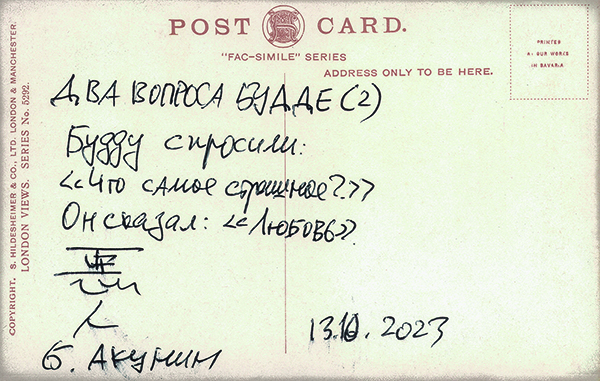 POST CARD.
"FAC-SIMILE" SERIES
ADDRESS ONLY TO BE HERE.
PRINTED
AT OUR WORKS
IN BAVARIA
COPYRIGHT. S. HILDESHEIMER & CO., LTD. LONDON & MANCHESTER.
LONDON VIEWS. SERIES No. 5292.
ДВА ВОПРОСА БУДДЕ (2)
Будду спросили:
«Что самое страшное?»
Он сказал: «Любовь».
Б. АКУНИН
13.10.2023